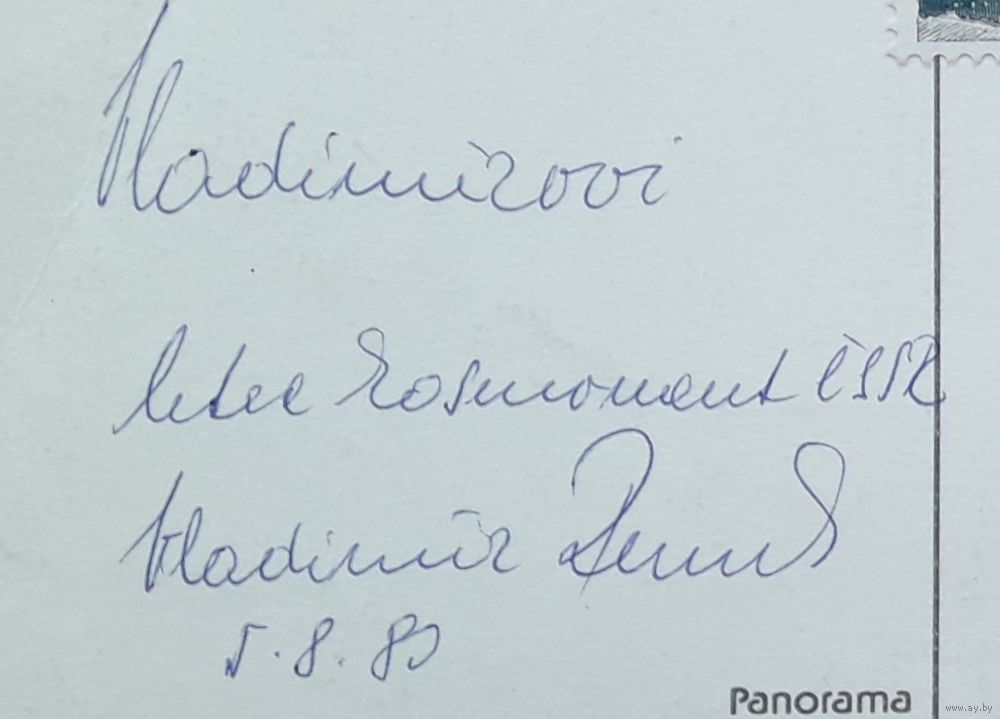 Vladimírovi
letec kosmonaut ČSSR
Vladimír Remek
5.8.89
Panorama
www.ay.by